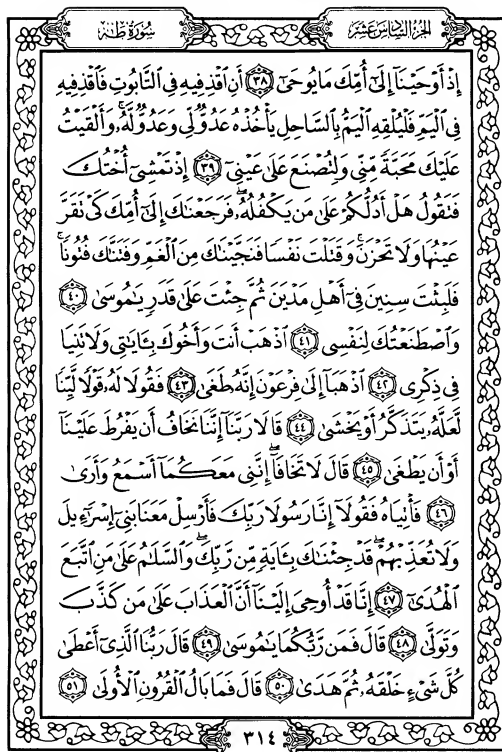 الجزء السادس عشر
سورة طه
إِذْ أَوْحَيْنَآ إِلَىٰٓ أُمِّكَ مَا يُوحَىٰٓ ٣٨ أَنِ ٱقْذِفِيهِ فِى ٱلتَّابُوتِ فَٱقْذِفِيهِ
فِى ٱلْيَمِّ فَلْيُلْقِهِ ٱلْيَمُّ بِٱلسَّاحِلِ يَأْخُذْهُ عَدُوٌّ لِّى وَعَدُوٌّ لَّهُۥ وَأَلْقَيْتُ
عَلَيْكَ مَحَبَّةً مِّنِّى وَلِتُصْنَعَ عَلَىٰ عَيْنِىٓ ٣٩ إِذْ تَمْشِىٓ أُخْتُكَ
فَتَقُولُ هَلْ أَدُلُّكُمْ عَلَىٰ مَن يَكْفُلُهُۥ فَرَجَعْنَٰكَ إِلَىٰٓ أُمِّكَ كَىْ تَقَرَّ
عَيْنُهَا وَلَا تَحْزَنَ وَقَتَلْتَ نَفْسًا فَنَجَّيْنَٰكَ مِنَ ٱلْغَمِّ وَفَتَنَّٰكَ فُتُونًا
فَلَبِثْتَ سِنِينَ فِىٓ أَهْلِ مَدْيَنَ ثُمَّ جِئْتَ عَلَىٰ قَدَرٍ يَٰمُوسَىٰ ٤٠
وَٱصْطَنَعْتُكَ لِنَفْسِى ٤١ ٱذْهَبْ أَنتَ وَأَخُوكَ بِـَٔايَٰتِى وَلَا تَنِيَا
فِى ذِكْرِى ٤٢ ٱذْهَبَآ إِلَىٰ فِرْعَوْنَ إِنَّهُۥ طَغَىٰ ٤٣ فَقُولَا لَهُۥ قَوْلًا لَّيِّنًا
لَّعَلَّهُۥ يَتَذَكَّرُ أَوْ يَخْشَىٰ ٤٤ قَالَا رَبَّنَآ إِنَّنَا نَخَافُ أَن يَفْرُطَ عَلَيْنَآ
أَوْ أَن يَطْغَىٰ ٤٥ قَالَ لَا تَخَافَآ إِنَّنِى مَعَكُمَآ أَسْمَعُ وَأَرَىٰ
٤٦ فَأْتِيَاهُ فَقُولَآ إِنَّا رَسُولَا رَبِّكَ فَأَرْسِلْ مَعَنَا بَنِىٓ إِسْرَٰٓءِيلَ
وَلَا تُعَذِّبْهُمْ قَدْ جِئْنَٰكَ بِـَٔايَةٍ مِّن رَّبِّكَ وَٱلسَّلَٰمُ عَلَىٰ مَنِ ٱتَّبَعَ
ٱلْهُدَىٰٓ ٤٧ إِنَّا قَدْ أُوحِىَ إِلَيْنَآ أَنَّ ٱلْعَذَابَ عَلَىٰ مَن كَذَّبَ
وَتَوَلَّىٰ ٤٨ قَالَ فَمَن رَّبُّكُمَا يَٰمُوسَىٰ ٤٩ قَالَ رَبُّنَا ٱلَّذِىٓ أَعْطَىٰ
كُلَّ شَىْءٍ خَلْقَهُۥ ثُمَّ هَدَىٰ ٥٠ قَالَ فَمَا بَالُ ٱلْقُرُونِ ٱلْأُولَىٰ ٥١
٣١٤